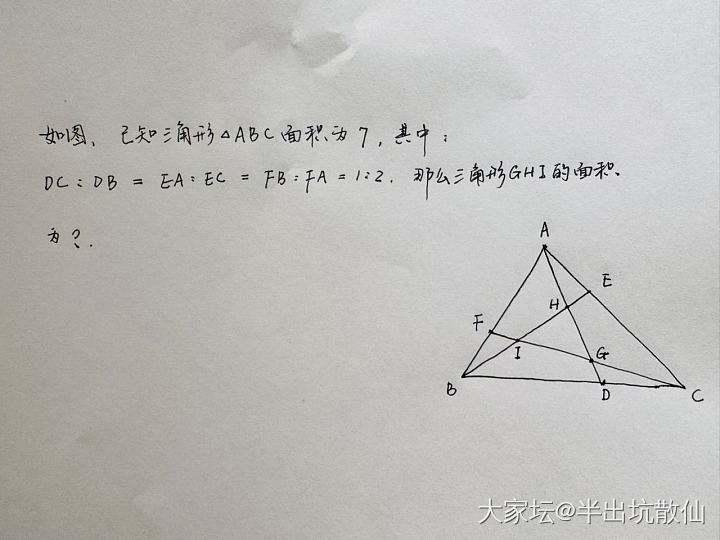 如图、已知三角形△ABC面积为7,其中:
DC:DB = EA:EC = FB:FA = 1:2. 那么三角形GHI的面积
为?.
A
E
H
F
I
G
B
D
C
大家坛@半出坑散仙